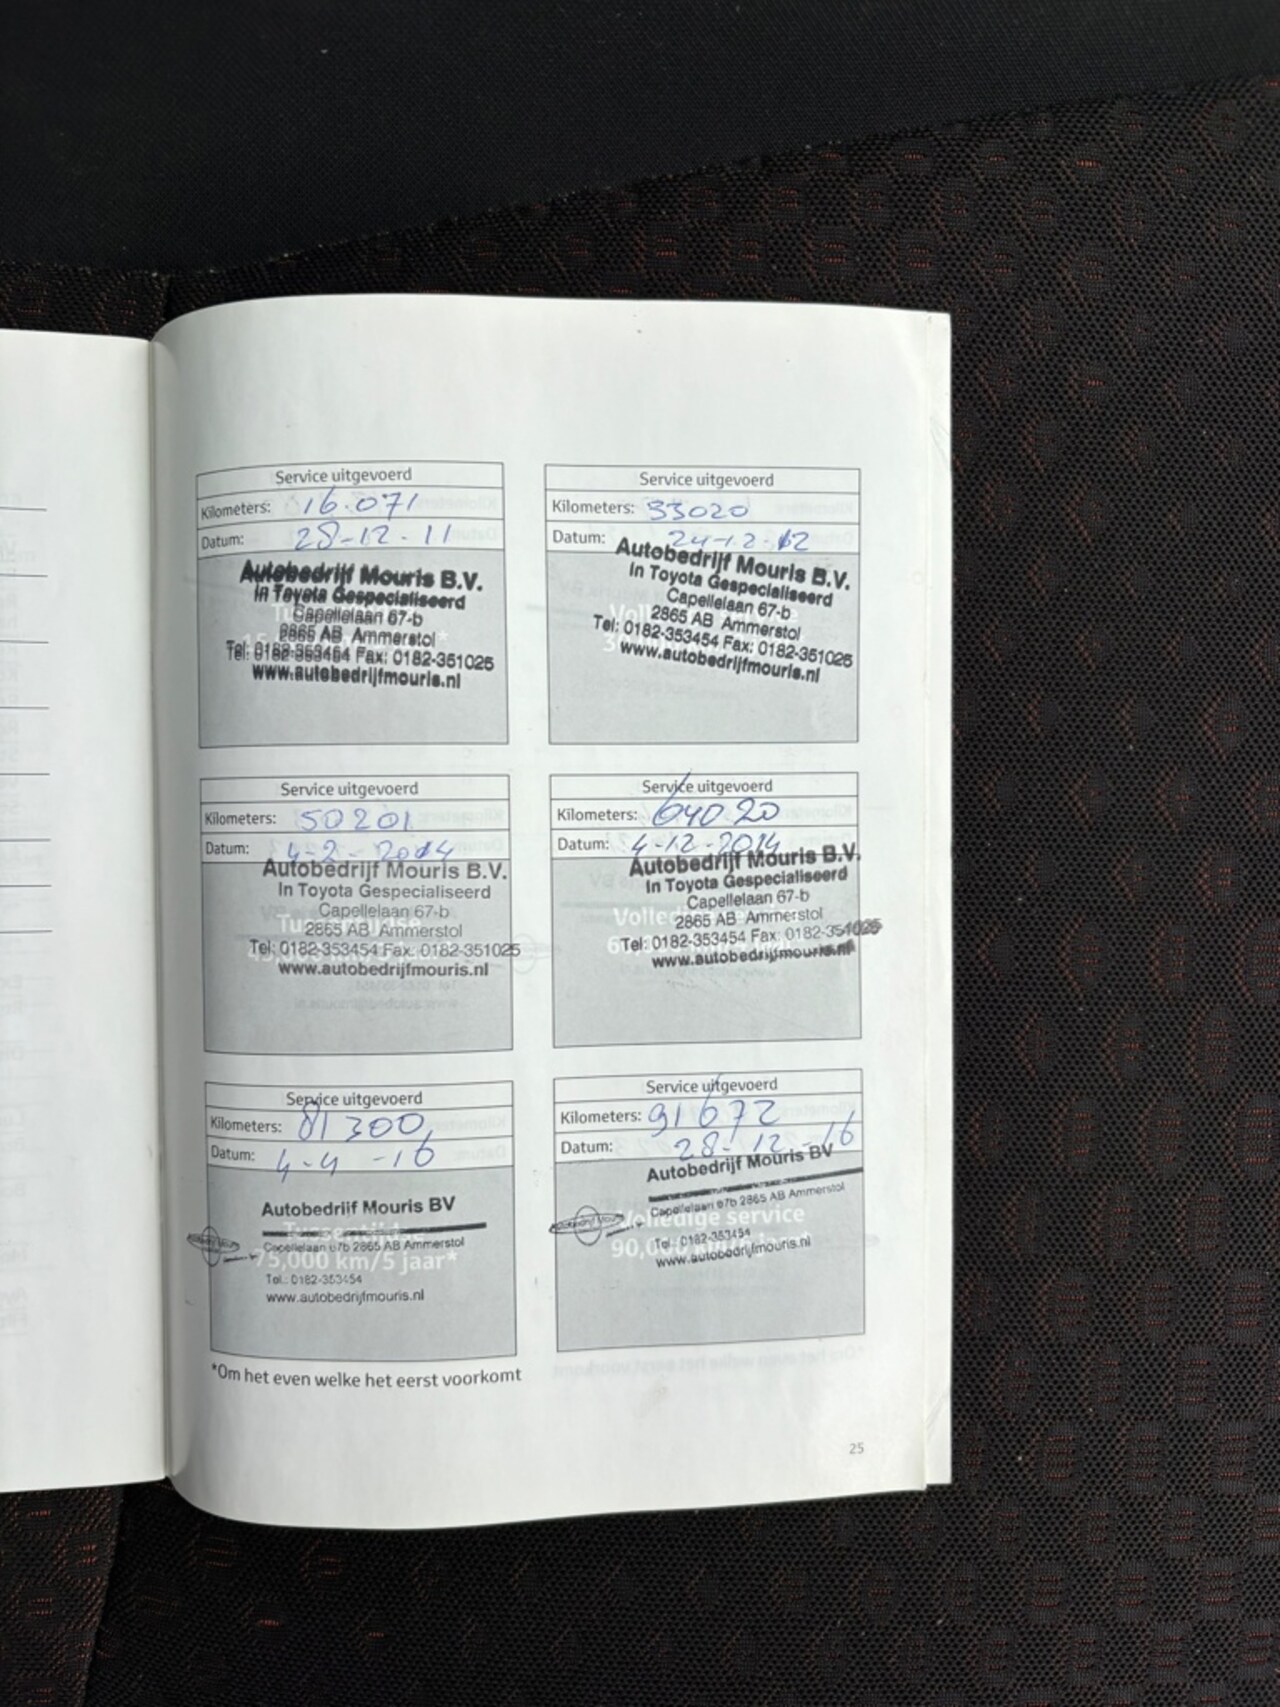 Service uitgevoerd
Kilometers: 16.071
Datum: 28-12-11
Autobedrijf Mouris B.V.
In Toyota Gespecialiseerd
Capellelaan 67-b
2865 AB Ammerstol
Tel: 0182-353454 Fax: 0182-351025
www.autobedrijfmouris.nl
Service uitgevoerd
Kilometers: 33020
Datum: 24-12-12
Autobedrijf Mouris B.V.
In Toyota Gespecialiseerd
Capellelaan 67-b
2865 AB Ammerstol
Tel: 0182-353454 Fax: 0182-351025
www.autobedrijfmouris.nl
Service uitgevoerd
Kilometers: 50201
Datum: 4-2-2014
Autobedrijf Mouris B.V.
In Toyota Gespecialiseerd
Capellelaan 67-b
2865 AB Ammerstol
Tel: 0182-353454 Fax: 0182-351025
www.autobedrijfmouris.nl
Service uitgevoerd
Kilometers: 64020
Datum: 4-12-2014
Autobedrijf Mouris B.V.
In Toyota Gespecialiseerd
Capellelaan 67-b
2865 AB Ammerstol
Tel: 0182-353454 Fax: 0182-351025
www.autobedrijfmouris.nl
Service uitgevoerd
Kilometers: 81300
Datum: 4-4-16
Autobedrijf Mouris BV
Tussentijdse
Capellelaan 67b 2865 AB Ammerstol
75,000 km/5 jaar*
Tel.: 0182-353454
www.autobedrijfmouris.nl
Service uitgevoerd
Kilometers: 91672
Datum: 28-12-16
Autobedrijf Mouris BV
Capellelaan 67b 2865 AB Ammerstol
Volledige service
Tel.: 0182-353454
90,000
www.autobedrijfmouris.nl
*Om het even welke het eerst voorkomt
25